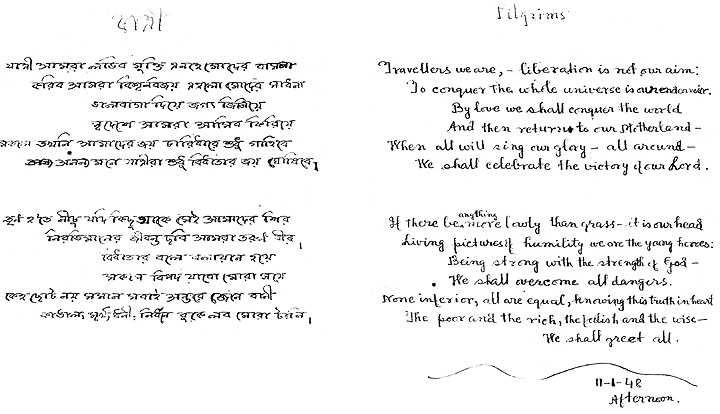 যাত্রী
যাত্রী আমরা লভিব মুক্তি এ নহে মোদের বাসনা
করিব আমরা বিশ্ববিজয় এ হলো মোদের সাধনা
ভালবাসা দিয়ে জগৎ জিনিয়ে
স্বদেশে আমরা আসিব ফিরিয়ে
সকলে তখনি আমাদের জয় চারিধারে শুধু গাহিবে
অনন্য মনে যাত্রীরা শুধু বিধাতার জয় ঘোষিবে।
তৃণ হ'তে নীচু যদি কিছু থাকে সেই আমাদের শির
নিরভিমানের জীবন্ত ছবি আমরা তরুণ বীর।
বিধাতার বলে বলীয়ান হয়ে
সকল বিপদ যাবো মোরা সয়ে
কেহ ছোট নয় সমান সবাই অন্তরে জেনে বাণী
কাঙাল, মূর্খ, ধনী, নির্ধন বুকে লব মোরা টানি।
Pilgrims
Travellers we are, – liberation is not our aim:
To conquer the whole universe is our endeavour.
By love we shall conquer the world
And then return to our Motherland –
When all will sing our glory – all around –
We shall celebrate the victory of our Lord.
If there be anything more lowly than grass – it is our head
Living pictures of humility we are the young heroes:
Being strong with the strength of God –
We shall overcome all dangers.
None inferior, all are equal, knowing this truth in heart
The poor and the rich, the foolish and the wise –
We shall greet all.
11-1-48
Afternoon.